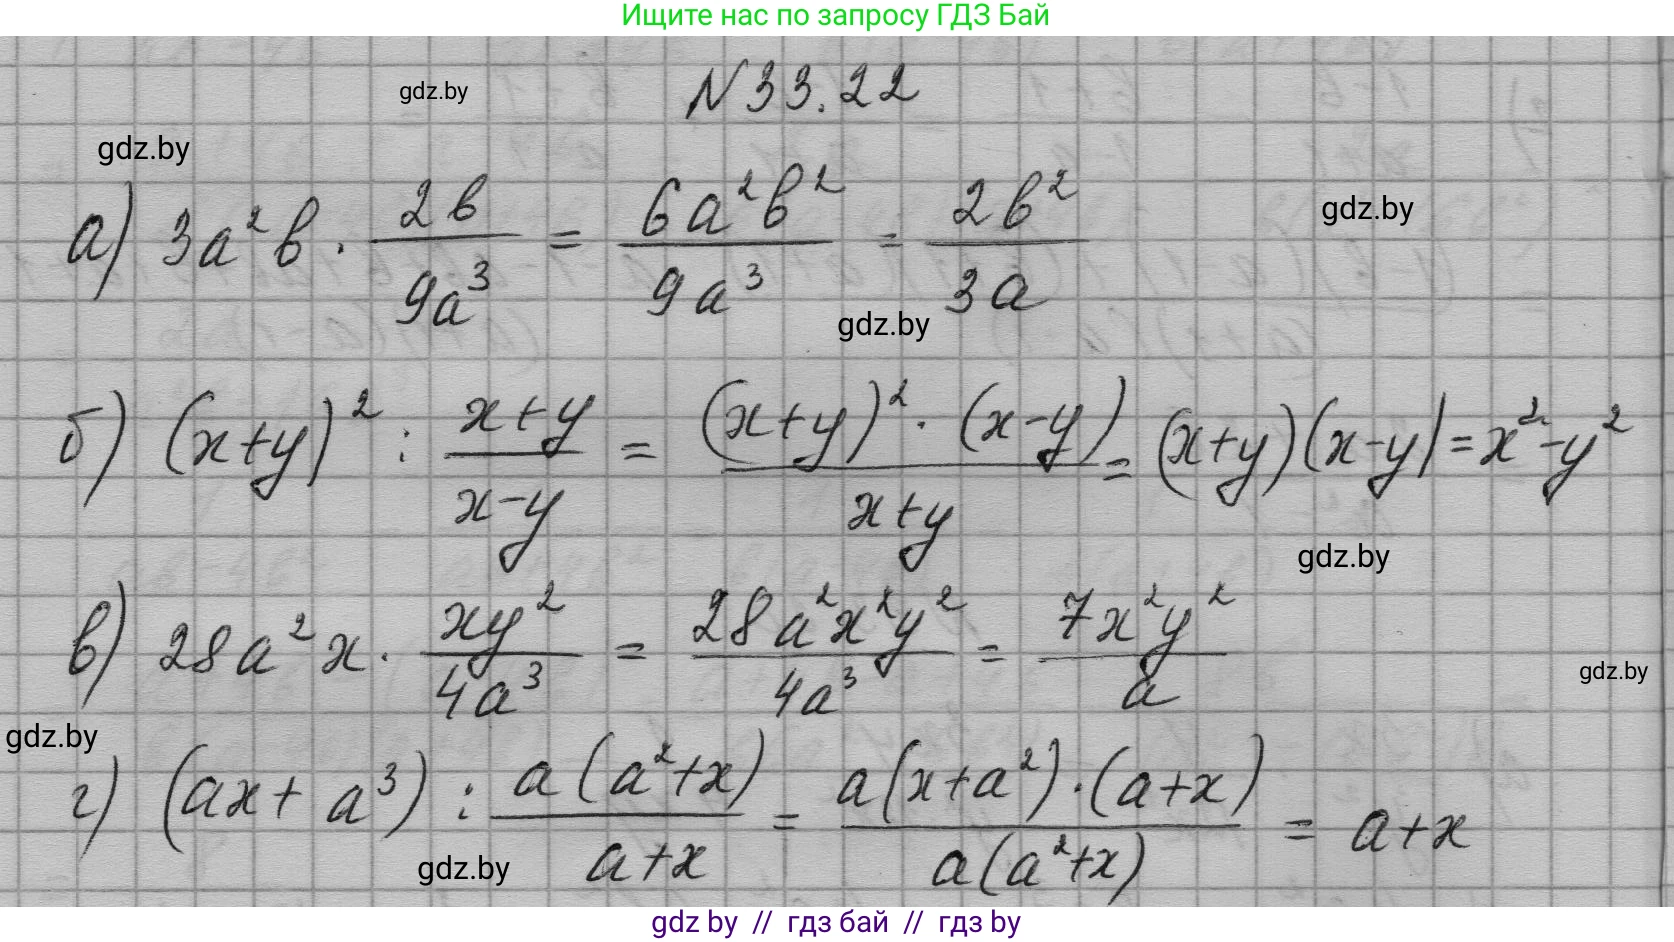 Ищите нас по запросу ГДЗ Бай
gdz.by
N33.22
gdz.by
gdz.by
а) 3a²b · 2b/9a³ = 6a²b²/9a³ = 2b²/3a
gdz.by
б) (x+y)² : (x+y)/(x-y) = (x+y)²·(x-y)/(x+y) = (x+y)(x-y) = x²-y²
gdz.by
в) 28a²x · xy²/4a³ = 28a²x²y²/4a³ = 7x²y²/a
gdz.by
gdz.by
г) (ax+a³) : a(a²+x)/(a+x) = a(x+a²)·(a+x)/a(a²+x) = a+x
gdz.by
gdz by // гдз бай // гдз by